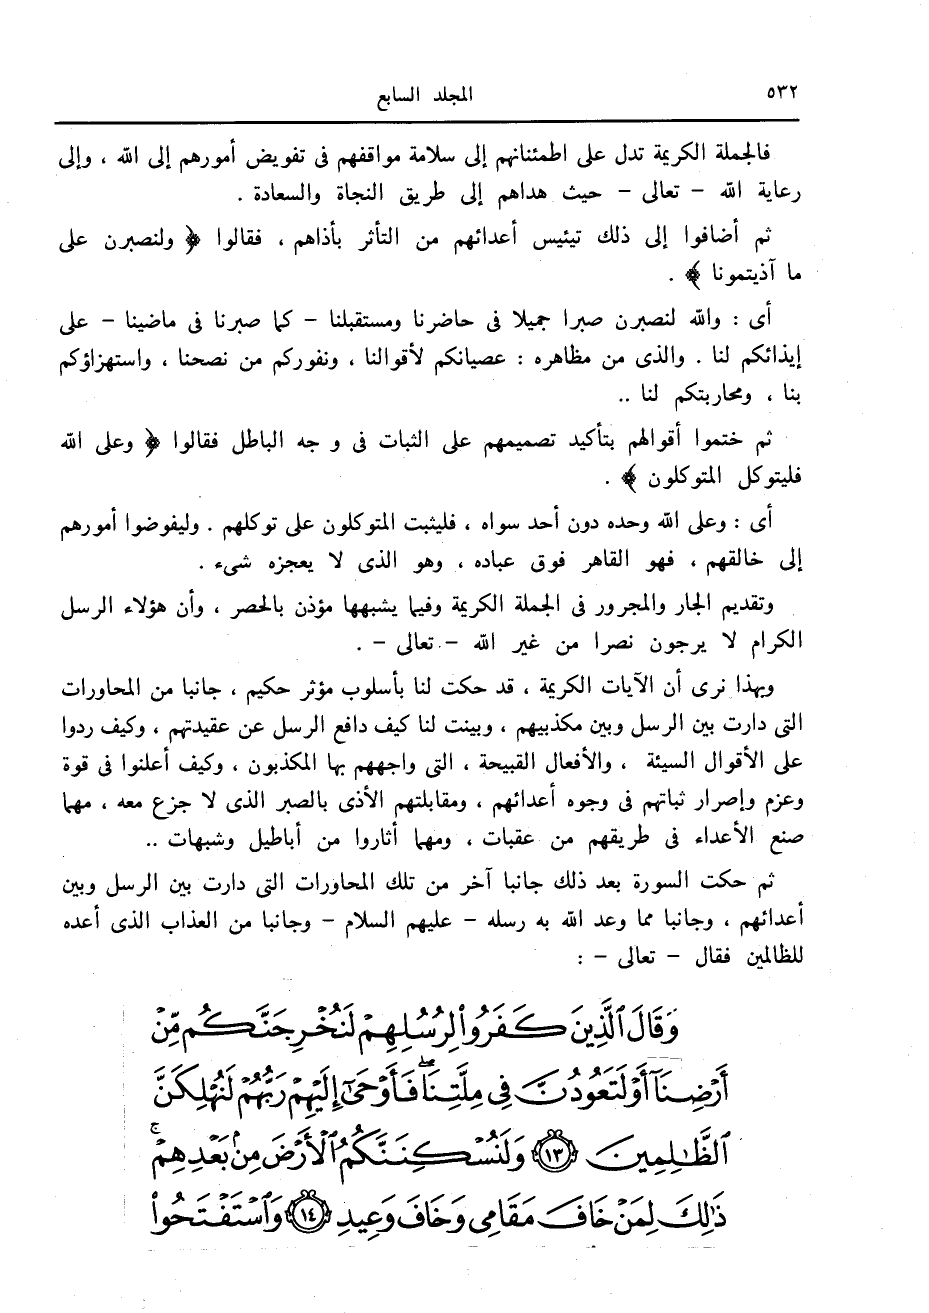 ٥٣٢
المجلد السابع
فالجملة الكريمة تدل على اطمئنانهم إلى سلامة مواقفهم فى تفويض أمورهم إلى الله ، وإلى
رعاية الله – تعالى – حيث هداهم إلى طريق النجاة والسعادة .
ثم أضافوا إلى ذلك تيئيس أعدائهم من التأثر بأذاهم ، فقالوا ﴿ ولنصبرن على
ما آذيتمونا ﴾ .
أى : والله لنصبرن صبرا جميلا فى حاضرنا ومستقبلنا – كما صبرنا فى ماضينا – على
إيذائكم لنا . والذى من مظاهره : عصيانكم لأقوالنا ، ونفوركم من نصحنا ، واستهزاؤكم
بنا ، ومحاربتكم لنا ..
ثم ختموا أقوالهم بتأكيد تصميمهم على الثبات فى و جه الباطل فقالوا ﴿ وعلى الله
فليتوكل المتوكلون ﴾ .
أى : وعلى الله وحده دون أحد سواه ، فليثبت المتوكلون على توكلهم . وليفوضوا أمورهم
إلى خالقهم ، فهو القاهر فوق عباده ، وهو الذى لا يعجزه شىء .
وتقديم الجار والمجرور فى الجملة الكريمة وفيما يشبهها مؤذن بالحصر ، وأن هؤلاء الرسل
الكرام لا يرجون نصرا من غير الله – تعالى – .
وبهذا نرى أن الآيات الكريمة ، قد حكت لنا بأسلوب مؤثر حكيم ، جانبا من المحاورات
التى دارت بين الرسل وبين مكذبيهم ، وبينت لنا كيف دافع الرسل عن عقيدتهم ، وكيف ردوا
على الأقوال السيئة ، والأفعال القبيحة ، التى واجههم بها المكذبون ، وكيف أعلنوا فى قوة
وعزم وإصرار ثباتهم فى وجوه أعدائهم ، ومقابلتهم الأذى بالصبر الذى لا جزع معه ، مهما
صنع الأعداء فى طريقهم من عقبات ، ومهما أثاروا من أباطيل وشبهات ..
ثم حكت السورة بعد ذلك جانبا آخر من تلك المحاورات التى دارت بين الرسل وبين
أعدائهم ، وجانبا مما وعد الله به رسله – عليهم السلام – وجانبا من العذاب الذى أعده
للظالمين فقال – تعالى – :
وَقَالَ ٱلَّذِينَ كَفَرُوا۟ لِرُسُلِهِمْ لَنُخْرِجَنَّكُم مِّنْ
أَرْضِنَآ أَوْ لَتَعُودُنَّ فِى مِلَّتِنَا ۖ فَأَوْحَىٰٓ إِلَيْهِمْ رَبُّهُمْ لَنُهْلِكَنَّ
ٱلظَّـٰلِمِينَ ١٣ وَلَنُسْكِنَنَّكُمُ ٱلْأَرْضَ مِنۢ بَعْدِهِمْ ۚ
ذَٰلِكَ لِمَنْ خَافَ مَقَامِى وَخَافَ وَعِيدِ ١٤ وَٱسْتَفْتَحُوا۟